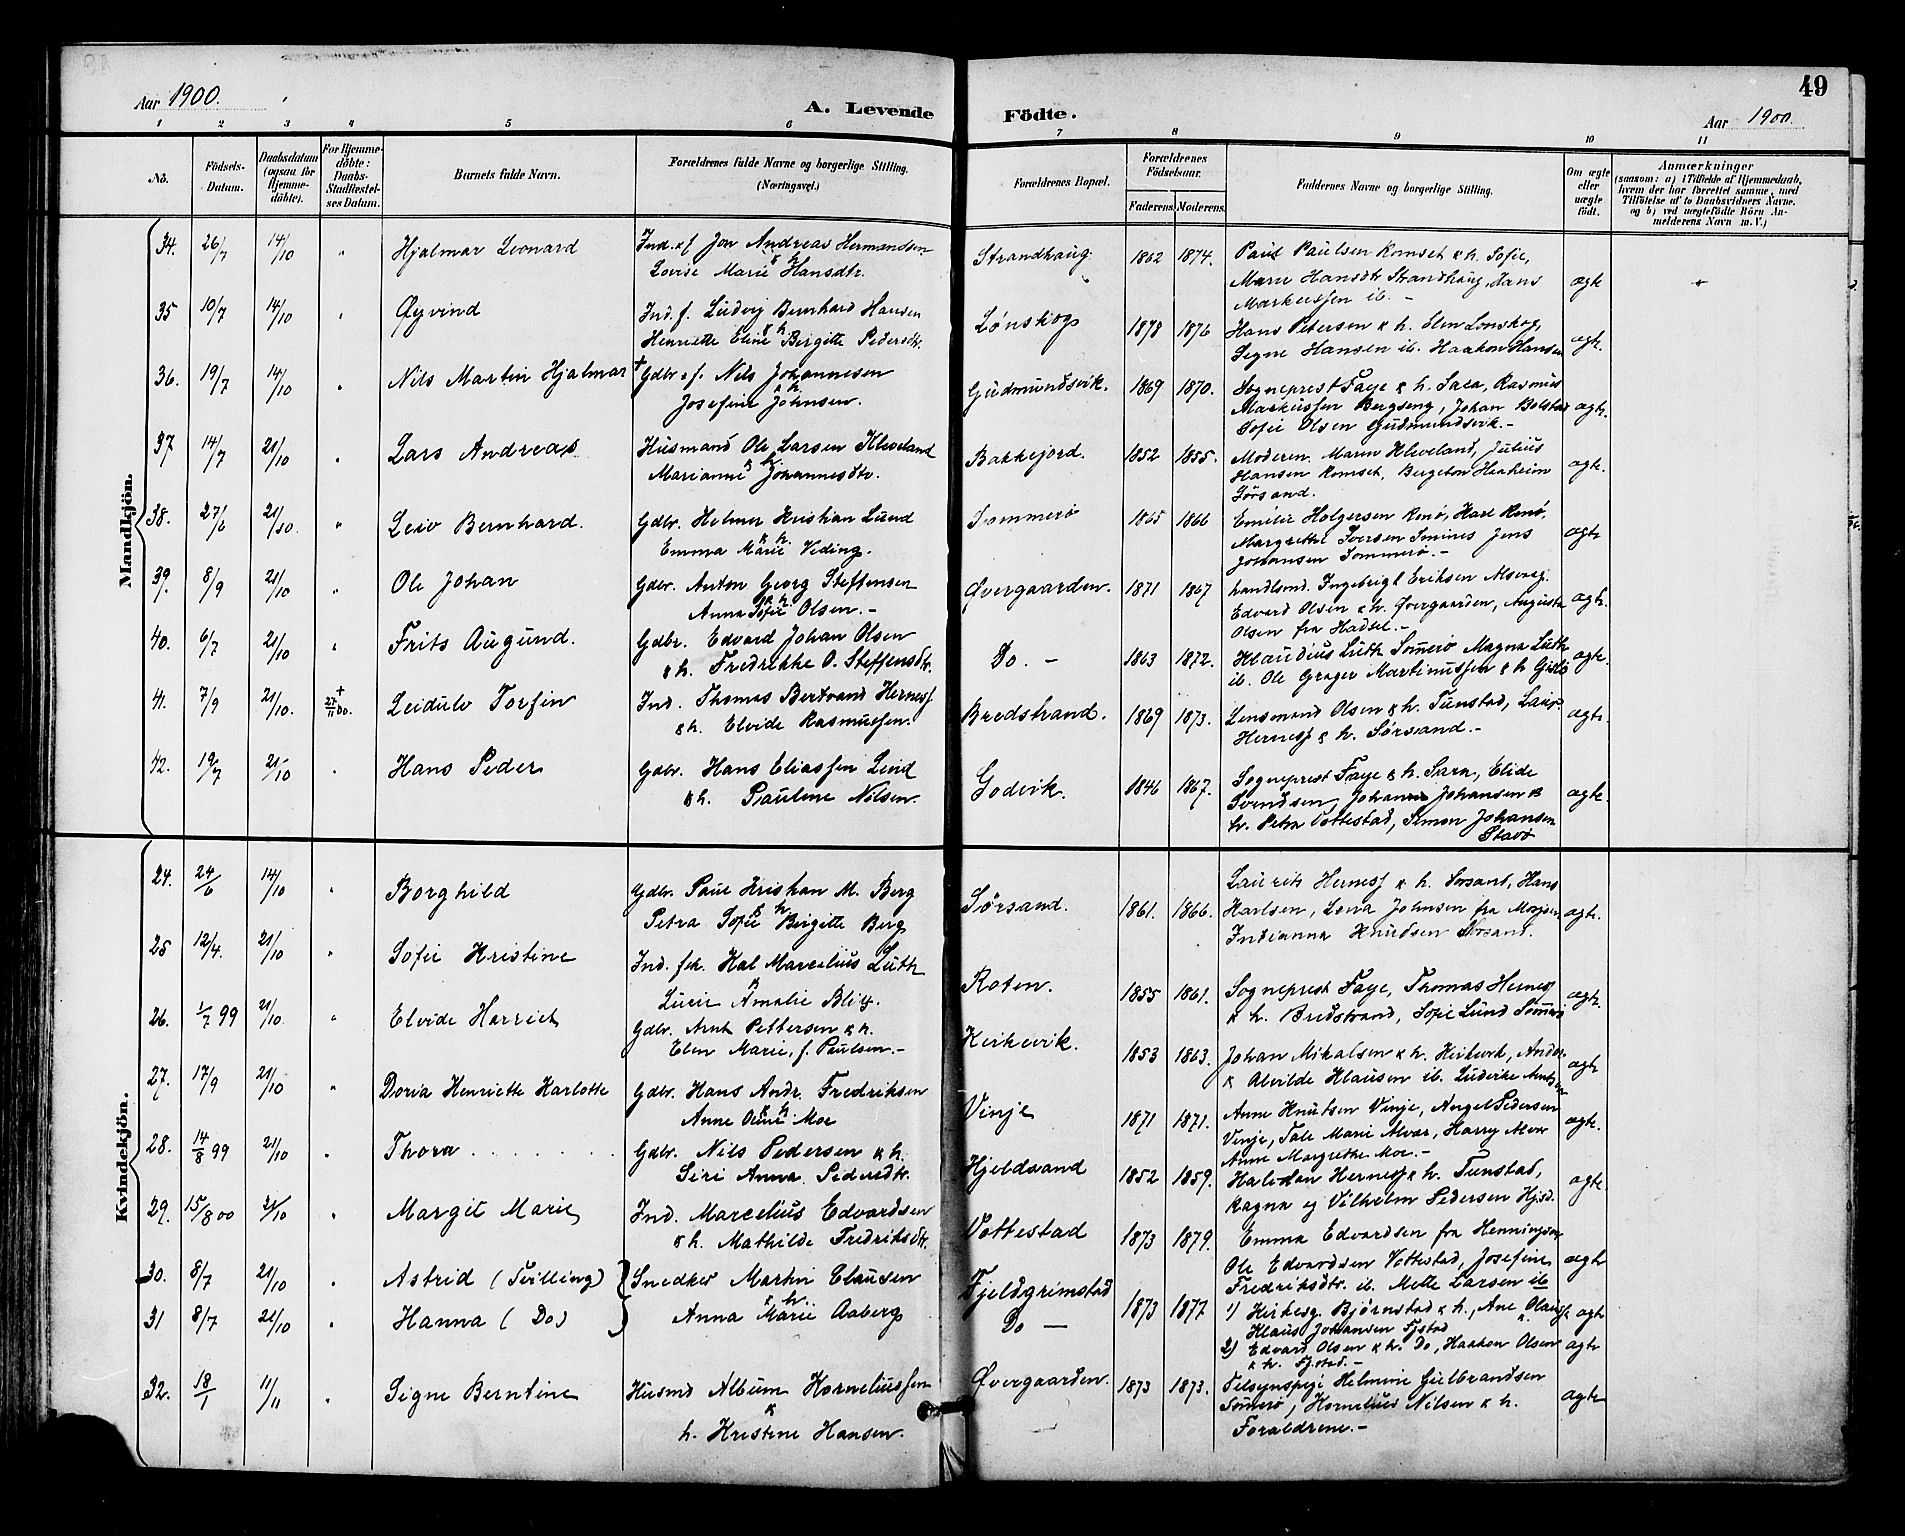 49
Aar 1900.
A. Levende Födte.
Aar 1900.
1 2 3 4 5 6 7 8 9 10 11
No.
Födsels-Datum.
Daabsdatum (ogsaa for Hjemme-döbte).
For Hjemme-döbte: Daabs-Stadfæstel-ses Datum.
Barnets fulde Navn.
Forældrenes fulde Navne og borgerlige Stilling. (Næringsvei.)
Forældrenes Bopæl.
Forældrenes Födselsaar.
Faderens. Moderens.
Faddernes Navne og borgerlige Stilling.
Om ægte eller uægte födt.
Anmærkninger
(saasom: a) i Tilfælde af Hjemmedaab,
hvem der har forrettet samme, med
Tilföielse af to Daabsvidners Navne,
og b) ved uægtefödte Börn An-
melderens Navn m. V.)
Mandkjön.
34. 26/7 14/10 " Hjalmar Leonard
Ind. s/f Jon Andreas Hermandsen
& h.
Lovise Marie Hansdtr.
Strandhaug. 1862 1874.
Paul Paulsen Romset & h. Sofie,
Marie Hansdtr Strandhaug, Hans
Markussen ib. -
ægte
35 10/7 14/10 " Øyvind
Ind. f. Ludvig Bernhard Hansen
& h.
Henriette Eline Bergitte Pedersdtr.
Lønskog 1878 1876
Hans Petersen & h. Elen Lonskog,
Signe Hansen ib. Haakon Hansen
ægte.
36. 19/7 14/10 " Nils Martin Hjalmar +
Gdbr. s/f. Nils Johannesen
& h.
Josefine Johnsen.
Gudmundsvik. 1869 1870.
Sogneprest Faye & h. Sara, Rasmus
Markussen Bergseng, Johan Bolstad
Sofie Olsen Gudmundsvik. -
ægte.
37 14/7 21/10 " Lars Andreas
Husmand Ole Larsen Kleveland
& h.
Marianne Johannesdtr.
Bakkejord. 1852 1855.
Moderen. Maren Kleveland, Julius
Hansen Romset, Bergeton Henheim
Sørsand.
ægte.
38. 27/6 21/10 " Leiv Bernhard.
Gdbr. Helmer Kristian Lund
& h.
Emma Marie Veding.
Sommerø 1865 1866
Emilie Holgersen Renø, Karl Renø,
Margrethe Iversen Jens
Johansen Sommerø. -
ægte
39. 8/9 21/10 " Ole Johan
Gdbr. Anton Georg Steffensen
& h.
Anna Sofie Olsen. -
Øvergaarden. 1871 1867
Landhand. Ingebrigt Eriksen
Edvard Olsen & h. Øvergaarden, Augusta
Olsen fra Hadsel. -
ægte.
40. 6/7 21/10 " Frits Augund.
Gdbr. Edvard Johan Olsen
& h. Fredrikke O. Steffensdtr.
Do. - 1863 1872.
Klaudius Luth Somerø Magna Luth
ib. Ole Grøger Martinussen & h Gislø
ægte.
41. 7/9 21/10. + 27/11 00. Leidulv Torfin
Ind. Thomas Bertrand Hernesf
& h. Elvide Rasmussen.
Bredstrand. 1869 1873.
Lensmand Olsen & h. Tunstad, Laur.
Hernesf & h. Sørsand. -
ægte.
42. 19/7 21/10 " Hans Peder
Gdbr. Hans Eliassen Lind
& h. Pauline Nilsen.
Godvik. 1846 1867.
Sogneprest Faye & h. Sara, Elide
Svendsen, Johan Johansen &
h. Petra Vottestad, Simon Johansen
Stavø
ægte.
Kvindekjön.
24. 24/6 14/10 " Borghild
Gdbr. Paul Kristian M. Berg
& h.
Petra Sofie Birgitte Berg
Sørsand. 1861. 1866.
Laurits Hernesf & h. Sørsant, Hans
Karlsen, Lena Johnsen fra Mosjøen
Indianna Knudsen Sørsand.
ægte.
25 12/4. 21/10 " Sofie Kristine
Ind. fsk. Hal Marcelius Luth
&
Lucie Amalie Blix.
Roten. 1855 1861.
Sogneprest Faye, Thomas Hernesf
& h. Bredstrand, Sofie Lund Sømerø
ægte.
26. 1/7 99 21/10 " Elvide Harriet
Gdbr. Arnt Pettersen & h.
Elen Marie, f. Paulsen. -
Kirkevik. 1853 1863.
Johan Mikalsen & h. Kirkevik, Anders
& Alvilde Klausen ib. Ludvike Arntsen
ægte
27. 17/9 21/10 " Doria Henriette Karlotte
Gdbr. Hans Andr. Fredriksen
& h
Anne Oline Moe
Vinje 1871 1871.
Anne Knutsen Vinje, Angel Pedersen
Vinje, Tale Marie Alvær, Harry Alvær
Anne Margrethe Moe. -
ægte.
28. 14/8 99 21/10 " Thora
Gdbr. Nils Pedersen & h.
Siri Anna Pedersdtr.
Hjeldsand 1852 1859.
Halvdan Hernesf & h. Tunstad,
Ragna og Vilhelm Pedersen Hjsd.
ægte
29. 15/8 00 21/10 " Margit Marie
Ind. Marcelius Edvardsen
& h. Mathilde Fredriksdtr.
Vottestad 1873 1879.
Emma Edvardsen fra Henningsvær
Ole Edvardsen Vottestad, Josefine
Fredriksdtr. ib. Mette Larsen ib
ægte
30. 8/7 21/10 " Astrid (Tvilling)
Snedker Martin Clausen
& h.
Anna Marie Aaberg
Fjeldgrimstad 1873 1877
1) Kirkesg. Bjørnstad & h., Ane Olaussf.
Klaus Johansen Fjstad
ægte
31 8/7 21/10 " Hanna (Do)
Do -
2) Edvard Olsen & h. Do, Haakon Olsen
& h. Fjstad. -
ægte
32. 18/1 11/11 " Signe Berntine
Husmd Album Korneliussen
&
h. Kristine Hansen.
Øvergaarden. 1873 1873.
Helmine Gulbrandsen
Sømerø, Kornelius Nilsen & h.
Forældrene. -
ægte